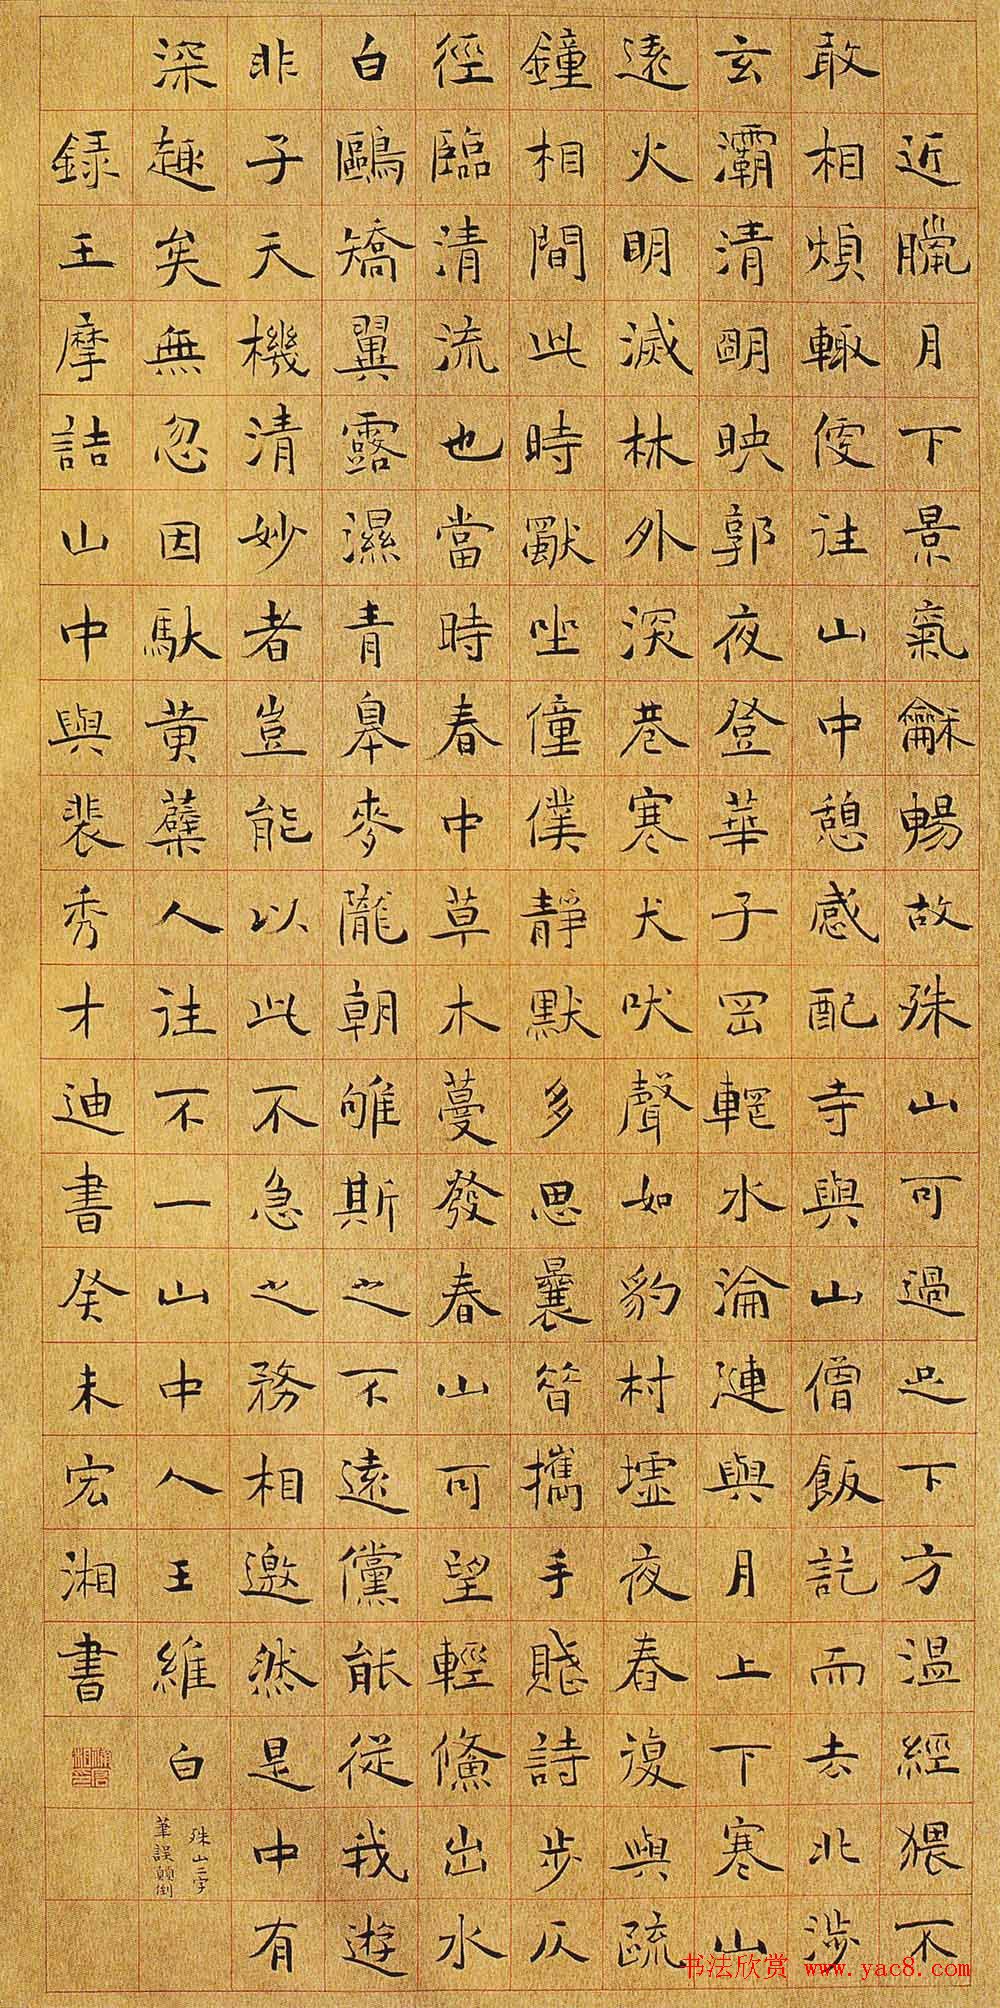 近臘月下景氣龢暢故殊山可過足下方溫經猥不
敢相煩輒便往山中憩感配寺與山僧飯訖而去北涉
玄灞清朙映郭夜登華子岡輞水淪漣與月上下寒山
遠火明滅林外深巷寒犬吠聲如豹村墟夜舂復與疏
鐘相間此時獨坐僮僕靜默多思曩昔攜手賦詩步仄
徑臨清流也當時春中草木蔓發春山可望輕鯈出水
白鷗矯翼露濕青皋麥隴朝雊斯之不遠儻能從我遊
非子天機清妙者豈能以此不急之務相邀然是中有
深趣矣無忽因馱黃蘗人往不一山中人王維白
殊山二字
筆誤顛倒
錄王摩詰山中與裴秀才迪書癸未宏湘書
书法欣赏 www.yac8.com